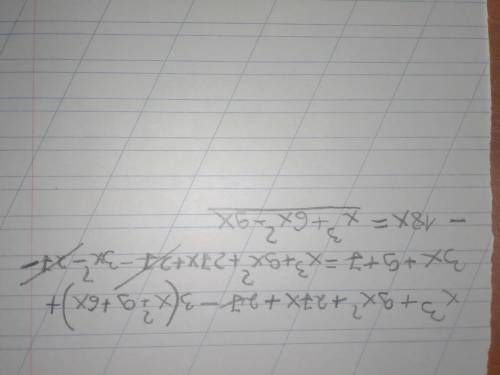 x³ + 9x² + 27x + 27 - 3(x² + 9 + 6x) +
3x + 9 + 7 = x³ + 9x² + 27x + 27 - 3x² - 27 -
- 18x = x³ + 6x² + 9x